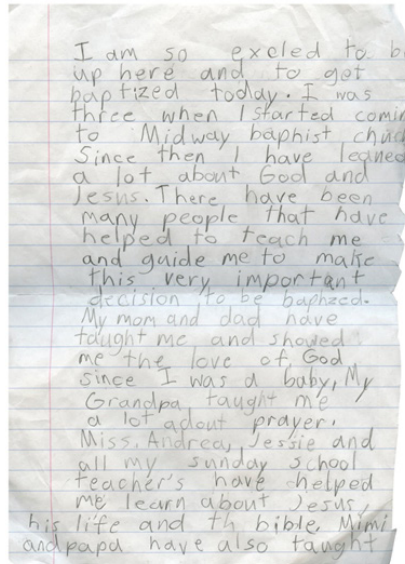 I am so excled to b
up here and to get
baptized today. I was
three when I started comin
to Midway baphist chuc
Since then I have leaned
a lot about God and
Jesus. There have been
many people that have
helped to teach me
and guide me to make
this very important
decision to be baphzed.
My mom and dad have
taught me and showed
me the love of God
since I was a baby, My
Grandpa taught me
a lot adout prayer.
Miss. Andrea, Jessie and
all my sunday school
teacher's have helped
me learn about Jesus,
his life and th bible Mimi
and papa have also taught